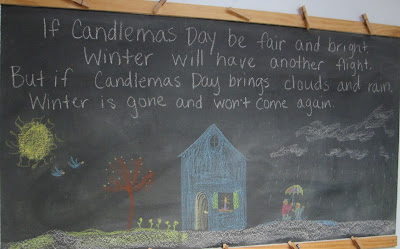 If Candlemas Day be fair and bright,
Winter will have another flight.
But if Candlemas Day brings clouds and rain,
Winter is gone and won't come again.